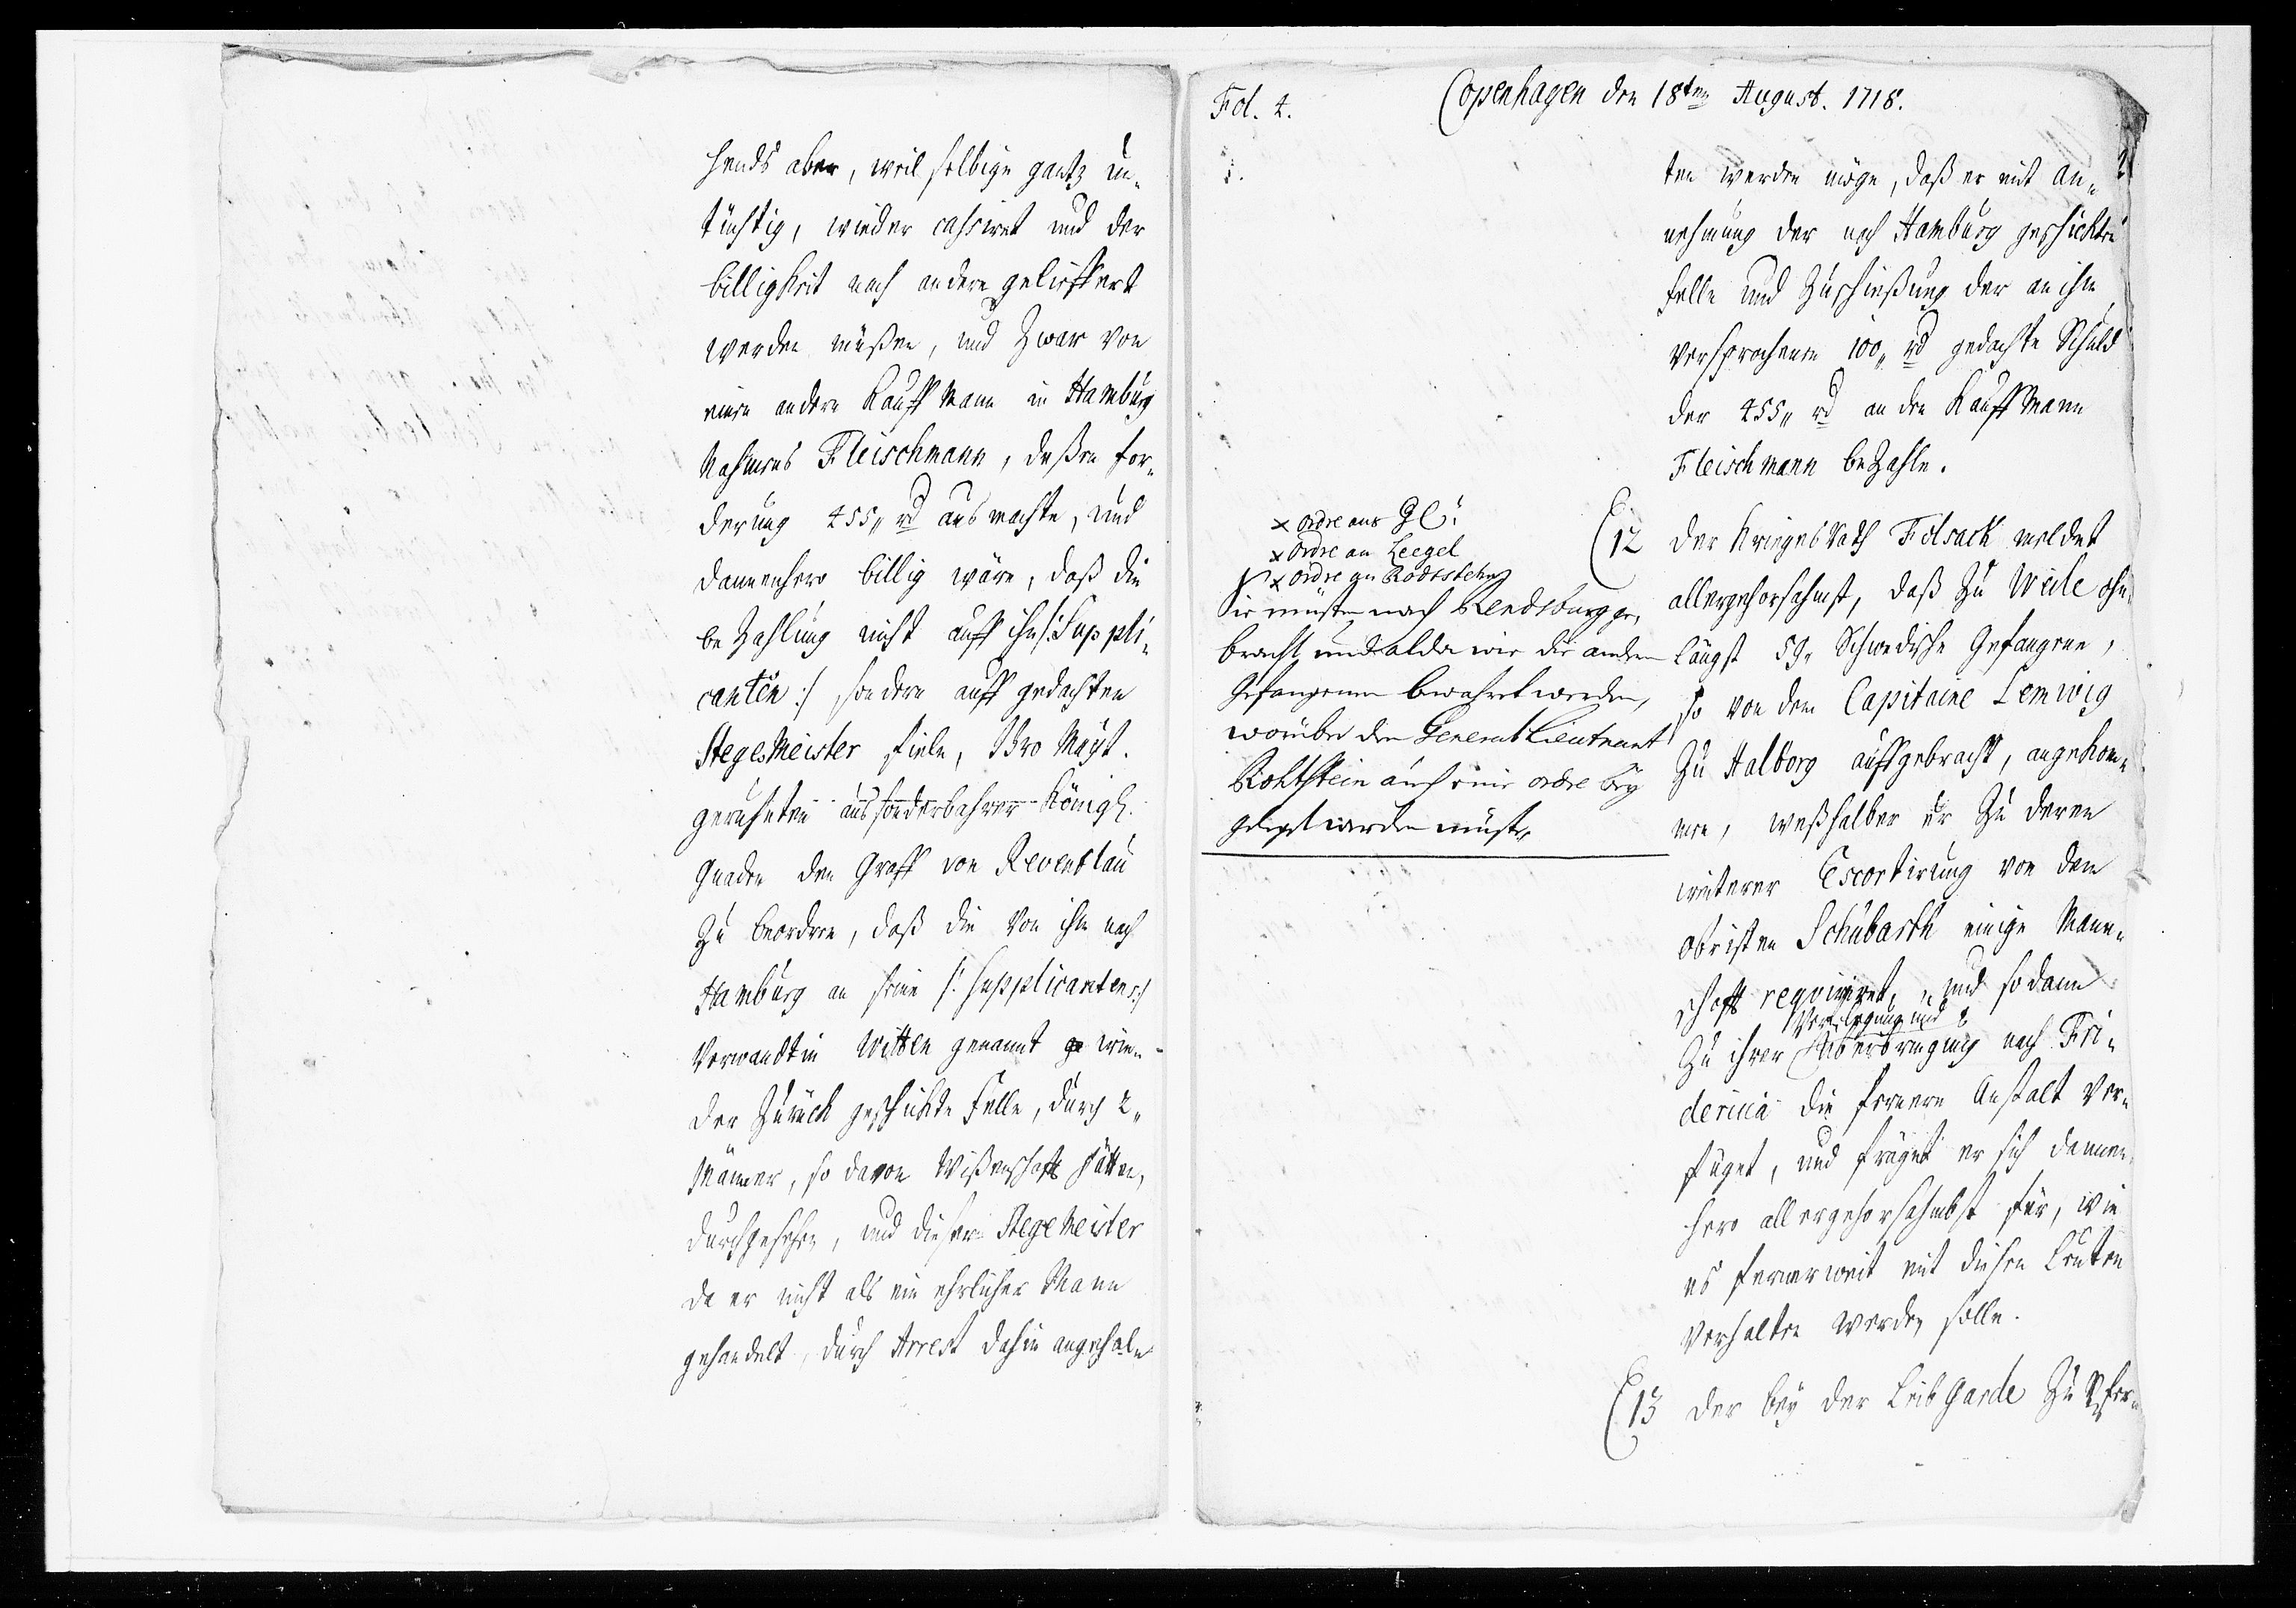 hends aber, weil selbige gantz un-
tüchtig, wieder cassiret und der
billigkeit nach andere gelieffert
werden müßen, und Zwar von
einen andern Kauff Mann in Hamburg
Nahmens Fleischmann, deßen for-
derung 455„ rd aus machte, und
dannenhero billig wäre, daß die
beZahlung nicht auff ihn /: Suppli-
canten :/ sondern auff gedachten
StegeMeister fiele, Ihro Mayt.
geruheten aus sonderbahrer Königl.
Gnaden den Graff von Reventlau
Zu beordren, daß die von ihm nach
Hamburg an seine /: Supplicanten :/
Verwandtin Witten genannt wie-
der Zurück geschickte Felle, durch 2„
Männer, so davon Wißenschafft hätten,
durchgesehen, und dieser StegeMeister
da er nicht als ein ehrlicher Mann
gehandelt, durch Arrest dahin angehal-
Fol. 4.
Copenhagen den 18ten August. 1718.
ten werden möge, daß er mit An-
nehmung der nach Hamburg geschickten
Felle und Zuschießung der an ihm
versprochenen 100„ rd gedachte Schuld
der 455„ rd an den Kauff Mann
Fleischmann beZahle.
x ordre ans GC:
x Ordre an Leegel
x ordre an Rodtsteen
Sie müsten nach Rendsburg ge-
bracht und alda wie die andern
Gefangenen bewahret werden,
worüber dem General Lieutenant
Rohtstein auch eine ordre bey
gelegt werden müste
12 Der Krieges Rath Folsack meldet
allergehorsahmst, daß Zu Weile ohn-
längst 59„ Schwedische Gefangene,
so von dem Capitaine Lemwig
Zu Aalborg auffgebracht, angekom-
men, weßhalber er Zu deren
weiterer Escortirung von dem
Obristen Schubarth einige Mann-
schafft reqviriret, und sodann
Verpflegung und
Zu ihrer Überbringung nach Fri-
dericia die fernere Anstalt ver-
füget, und fräget er sich dannen-
hero allergehorsahmbst für, wie
es fernerweit mit diesen Leuten
verhalten werden solle.
13 Der bey der Leib Garde Zu Pfer-